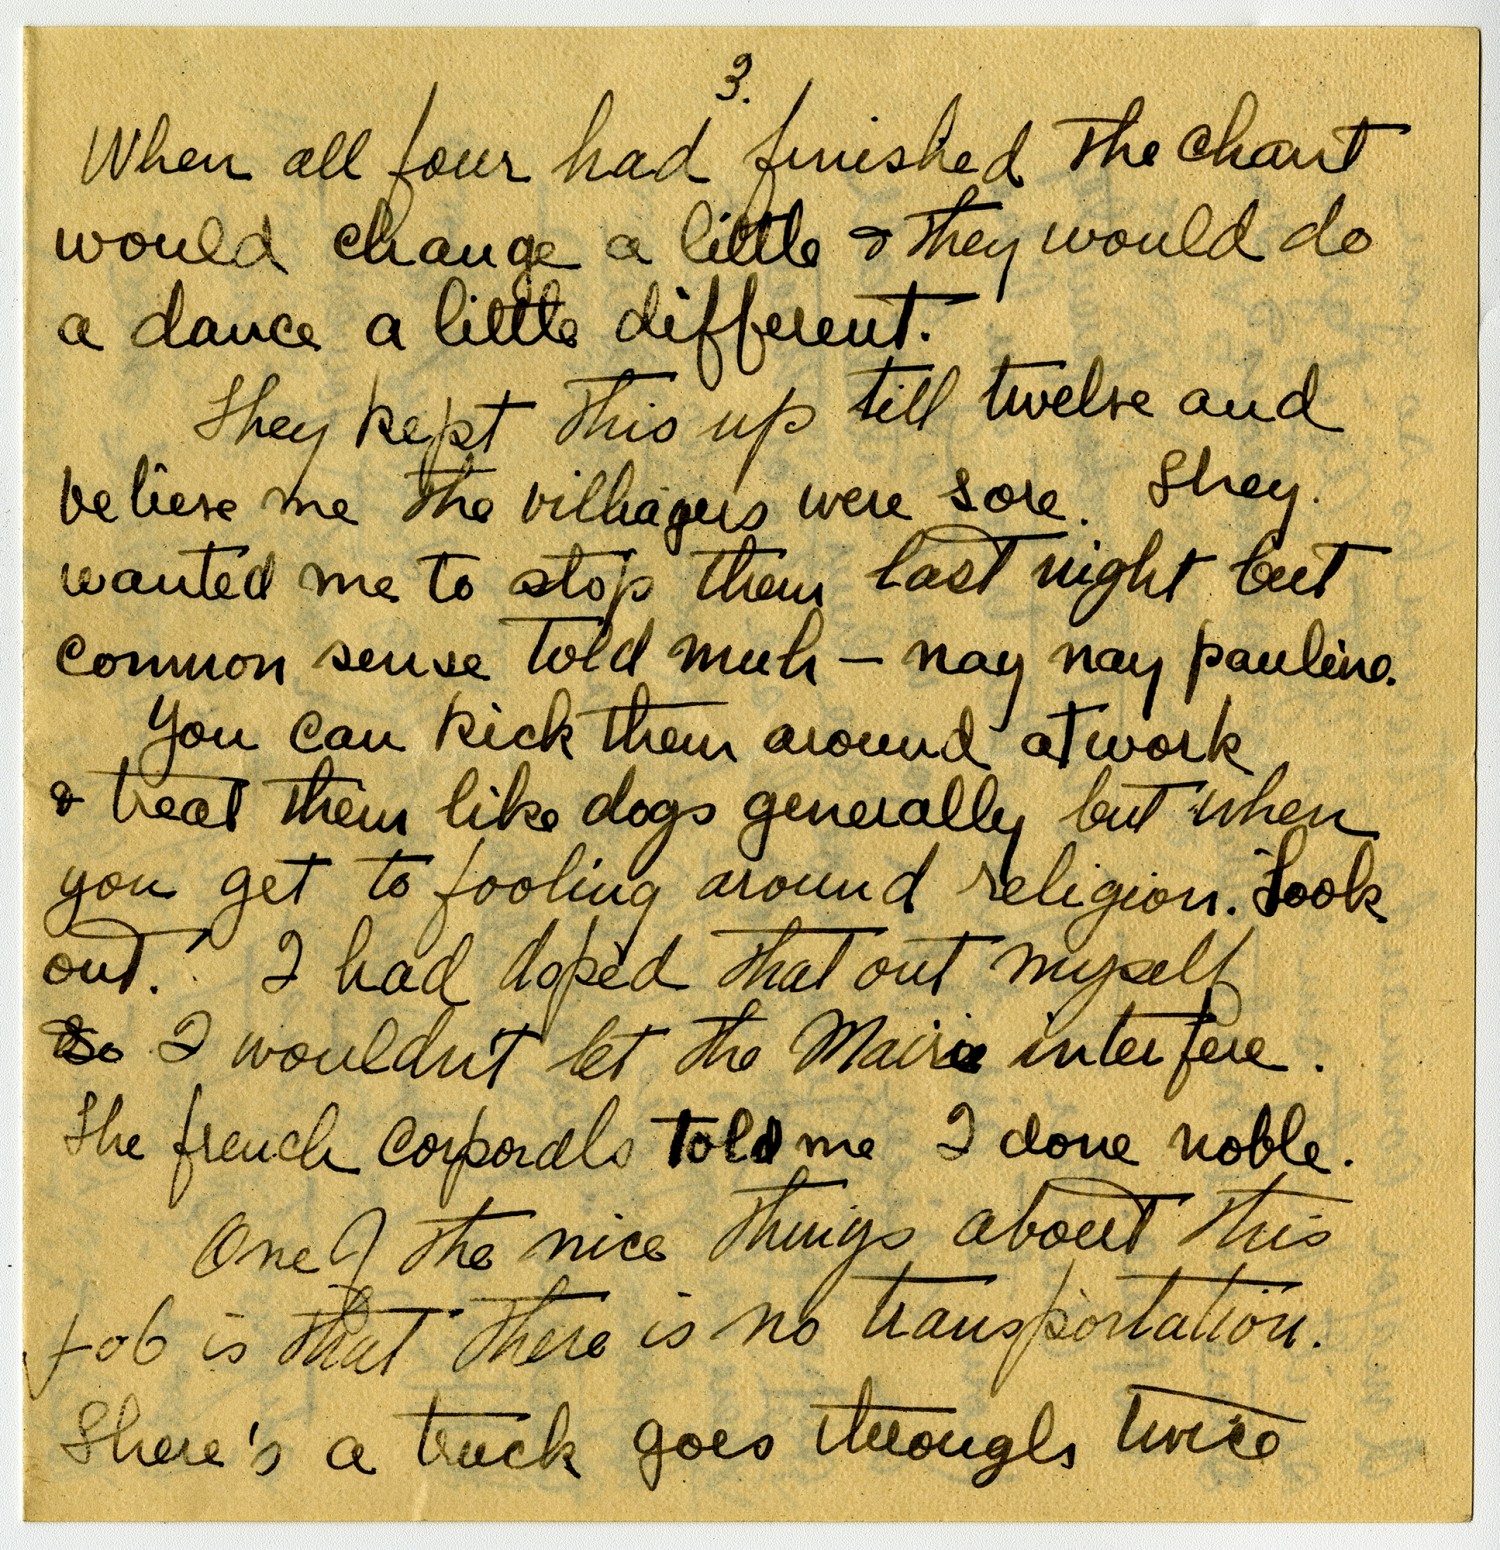 3.
When all four had finished the chant
would change a little & they would do
a dance a little different.
They kept this up till twelve and
believe me the villiagers were sore. They
wanted me to stop them last night but
common sense told muh — nay nay pauline.
You can kick them around at work
& treat them like dogs generally but when
you get to fooling around religion. Look
out. I had doped that out myself
so I wouldn't let the Mairie interfere.
The french corporals told me I done noble.
One of the nice things about this
job is that there is no transportation.
There's a truck goes through twice